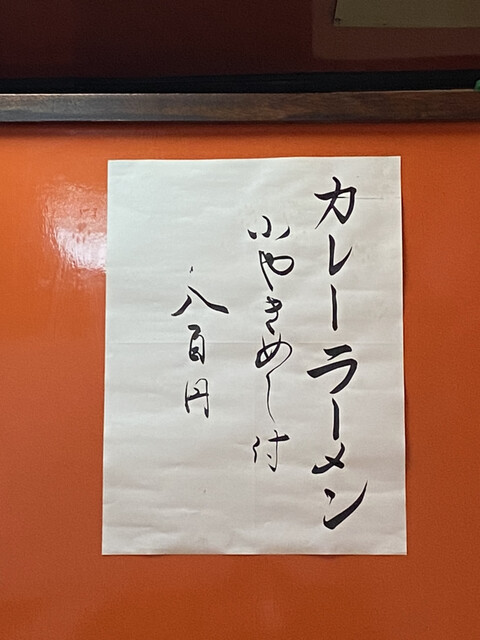 カレーラーメン
小やきめし付
八百円